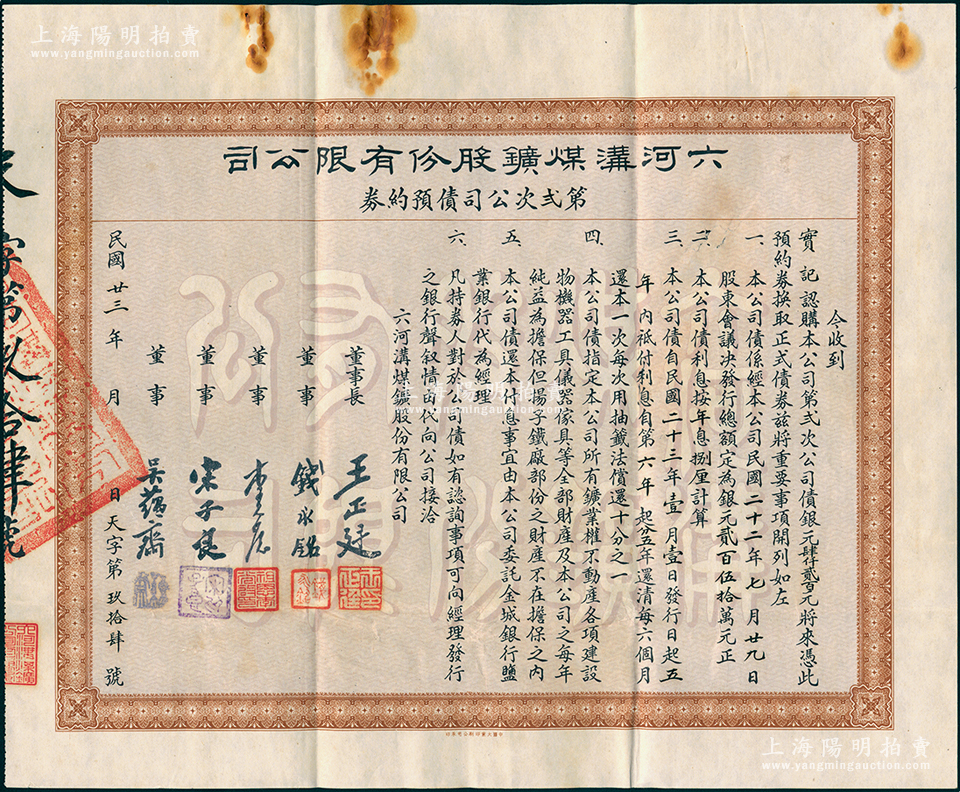 上海陽明拍賣
www.yangmingauction.com
六河溝煤鑛股份有限公司
第弍次公司債預約券
今收到
寶記認購本公司第弍次公司債銀元肆仟貳百元將來憑此
預約券換取正式債券茲將重要事項開列如左
一、本公司債係經本公司民國二十二年七月廿九日
股東會議決發行總額定為銀元貳百伍拾萬元正
二、本公司債利息按年息捌厘計算
三、本公司債自民國二十三年壹月壹日發行日起五
年內祇付利息自第六年起分五年還清每六個月
還本一次每次用抽籤法償還十分之一
四、本公司債指定本公司所有鑛業權不動產各項建設
物機器工具儀器傢具等全部財產及本公司之每年
純益為擔保但揚子鐵廠部份之財產不在擔保之內
五、本公司債還本付息事宜由本公司委託金城銀行鹽
業銀行代為經理
六、凡持券人對於公司債如有認詢事項可向經理發行
之銀行聲叙情由代向公司接洽
六河溝煤鑛股份有限公司
董事長 王正廷
董事 錢永銘
董事 李
董事 宋子良
董事 吳蘊齋
民國廿三年 月 日天字第玖拾肆號
天字第玖拾肆號
上海陽明拍賣
www.yangmingauction.com
上海陽明拍賣
www.yangmingauction.com